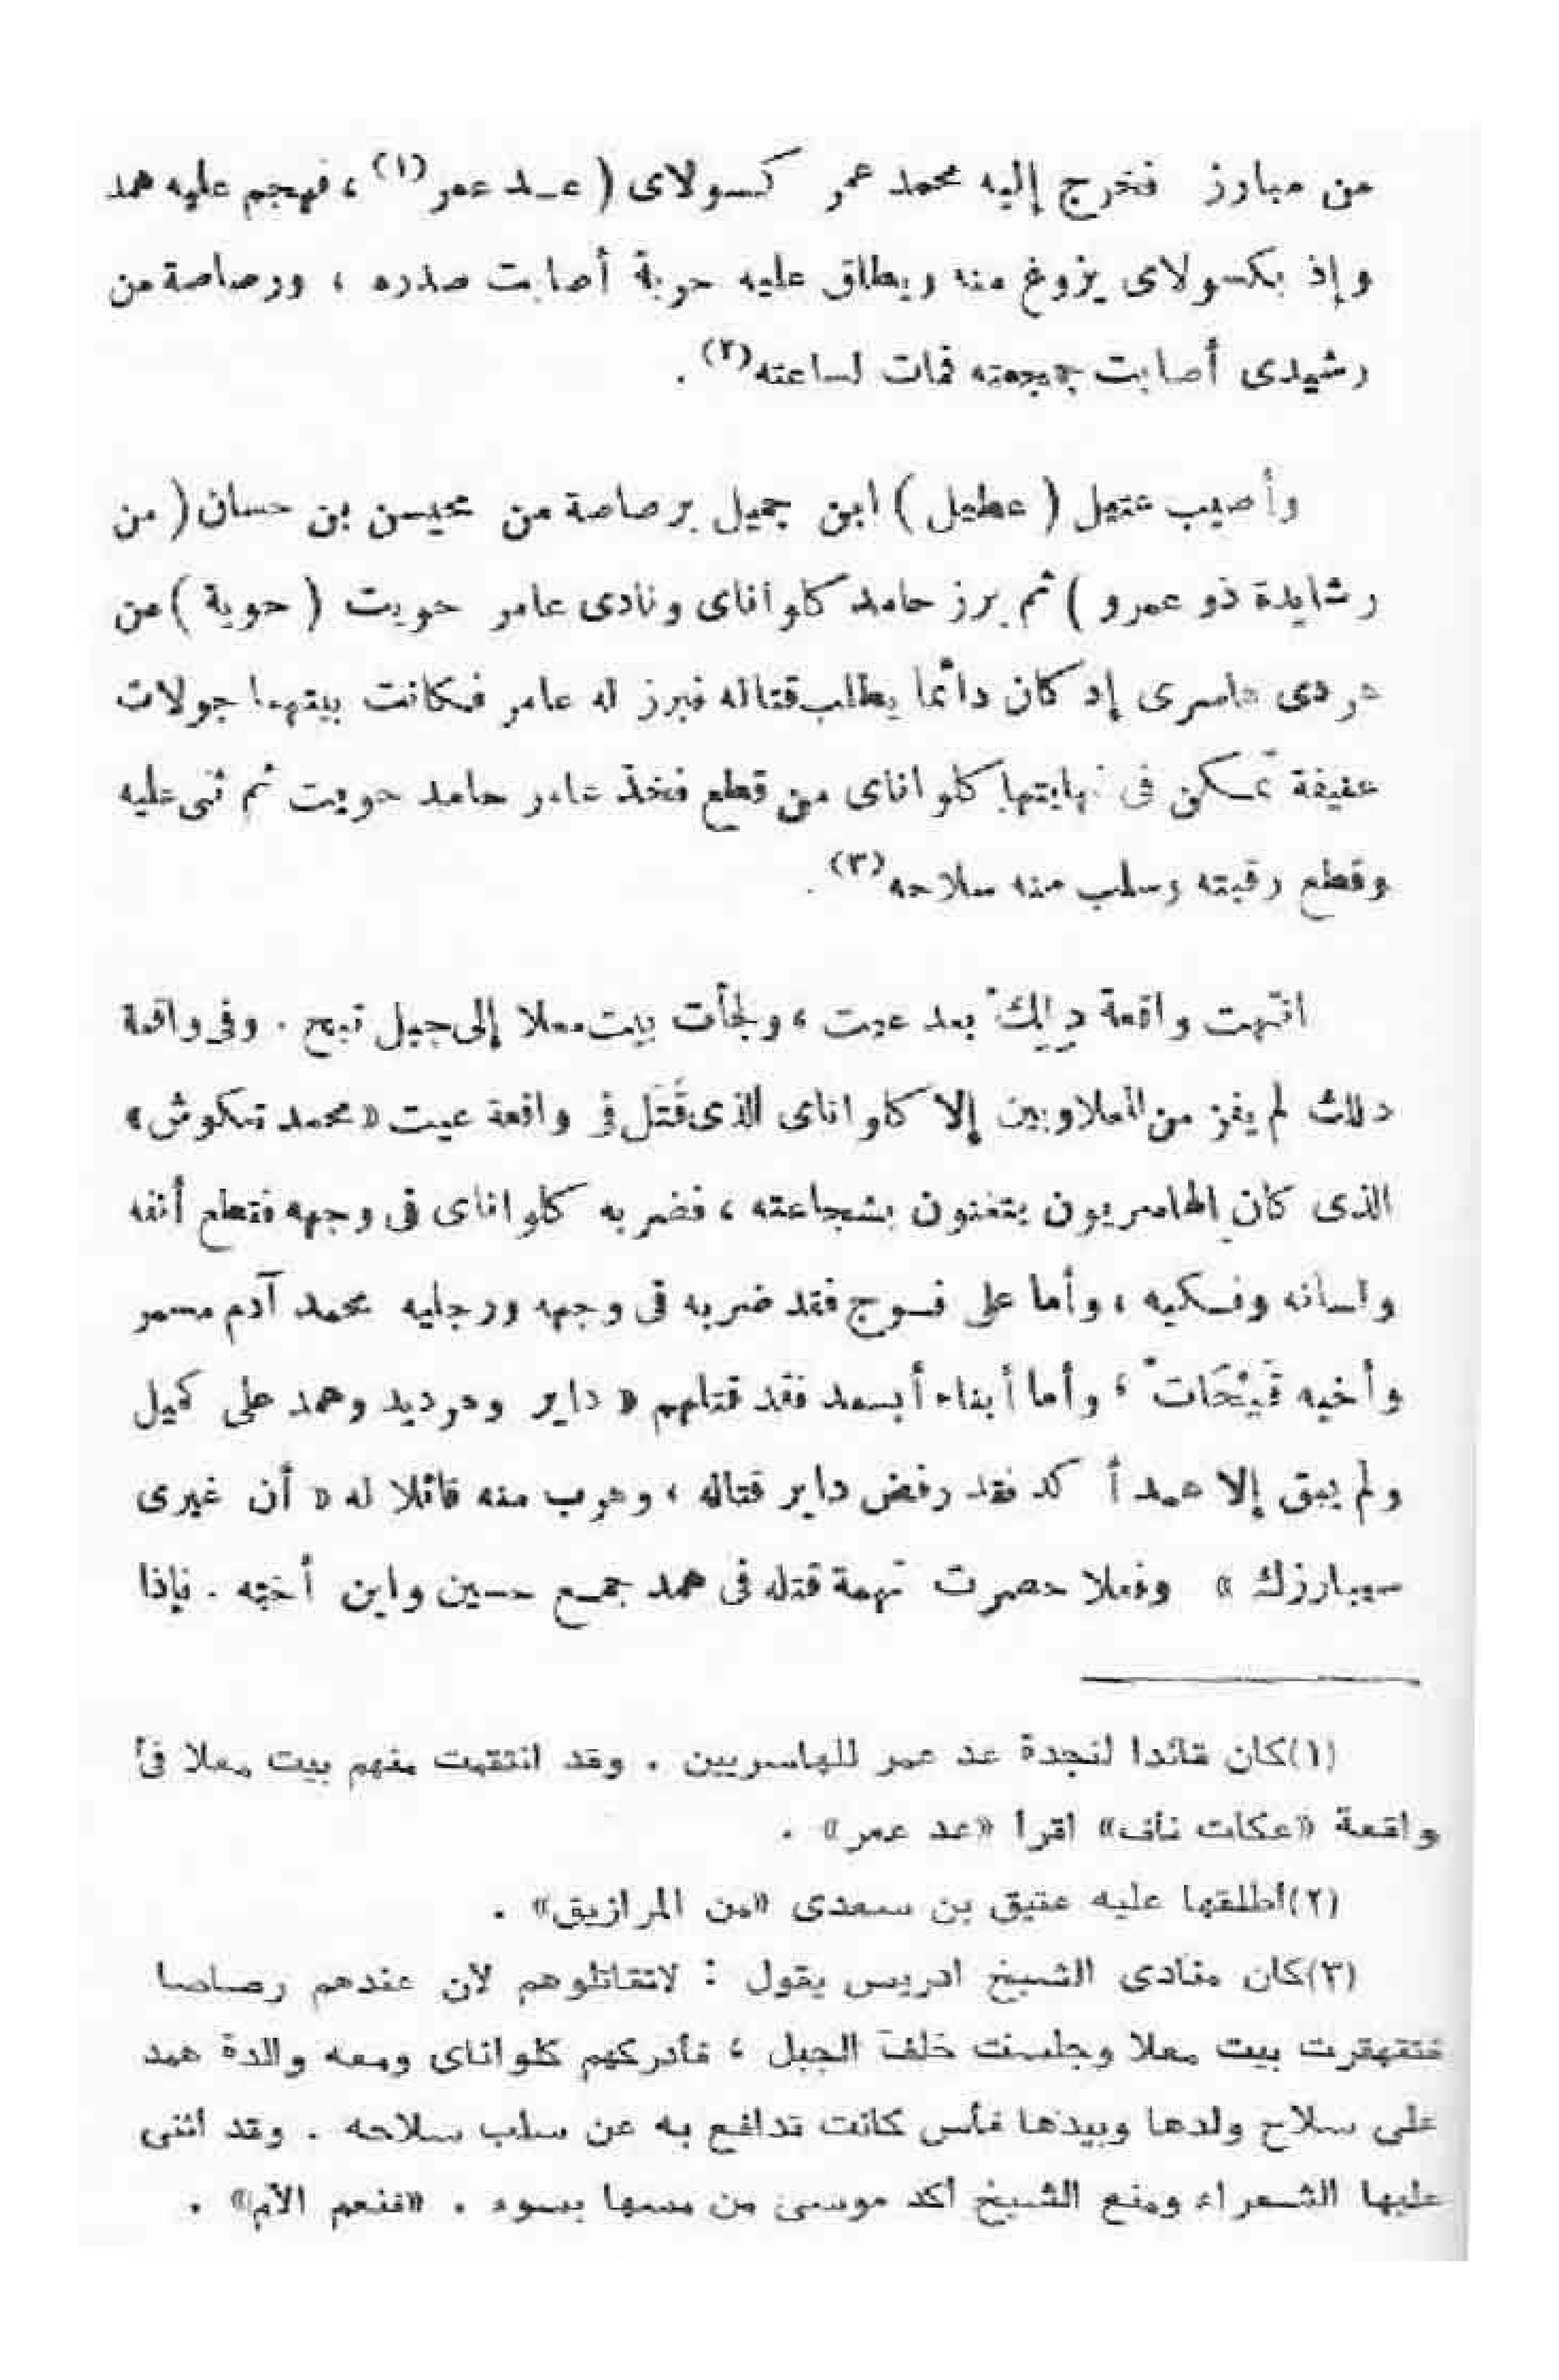 من مبارز فخرج إليه محمد عمر كسولاى ( عـد عمر(١) ، فهجم عليه همد
وإذ بكسولاى يزوغ منه ويطلق عليه حربة أصابت صدره ، ورصاصة من
رشيدى أصابت جمجمته فمات لساعته(٢) .
وأصيب عتيل ( عطيل ) ابن جميل برصاصة من محيسن بن حسان ( من
رشايدة ذو عمرو ) ثم برز حامد كلواناى ونادى عامر حويت ( حوية ) من
دردى هاسرى إد كان دائما يطلب قتاله فبرز له عامر فكانت بينهما جولات
عنيفة تمكن فى نهايتها كلواناى من قطع فخذ عامر حامد حويت ثم ثنى عليه
وقطع رقبته وسلب منه سلاحه(٣) .
انتهت واقعة دِلِكْ بعد عيت ، ولجأت بيت معلا إلى جبل نبح . وفى واقعة
دلك لم يفز من المعلاويين إلا كلواناى الذى قَتَل فى واقعة عيت « محمد تكوش »
الذى كان الهاسريون يتغنون بشجاعته ، فضربه كلواناى فى وجهه فقطع أنفه
ولسانه وفكيه ، وأما على فسوج فقد ضربه فى وجهه ورجليه محمد آدم مسمر
وأخيه ، وأما أبناء أبسعد فقد قتلهم « داير ودرديد وهمد على كميل
ولم يبق إلا همد أكد فقد رفض داير قتاله ، وهرب منه قائلا له « أن غيرى
سيبارزك » وفعلا حصرت تهمة قتله فى همد جمع حسين وابن أخته . فإذا
(١) كان قائدا لنجدة عد عمر للهاسريين . وقد انتقمت منهم بيت معلا فى
واقعة «عكات ناف» اقرأ «عد عمر» .
(٢) أطلقها عليه عتيق بن سعدى «من المرازيق» .
(٣) كان منادى الشيخ ادريس يقول : لاتقاتلوهم لأن عندهم رصاصا
فتقهقرت بيت معلا وجلست خلف الجبل ، فأدركهم كلواناى ومعه والدة همد
على سلاح ولدها وبيدها فأس كانت تدافع به عن سلب سلاحه . وقد أثنى
عليها الشعراء ومنع الشيخ أكد موسى من مسها بسوء . «فنعم الأم» .